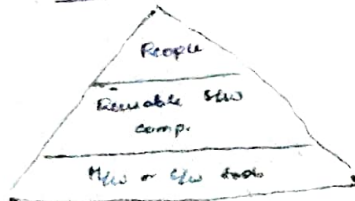 People
Reusable S/w
comp.
H/w or S/w tools